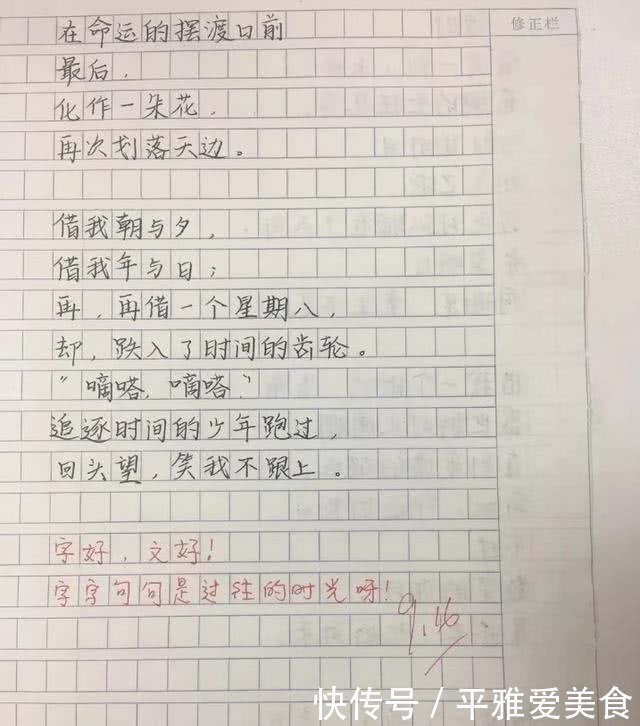 修正栏
在命运的摆渡日前
最后,
化作一朵花,
再次划落天边。
借我朝与夕,
借我年与日;
再,再借一个星期八,
却,跌入了时间的齿轮。
“嘀嗒,嘀嗒”
追逐时间的少年跑过,
回头望,笑我不跟上。
字好,文好!
字字句句是过往的时光呀!
9.16
快传号/平雅爱美食